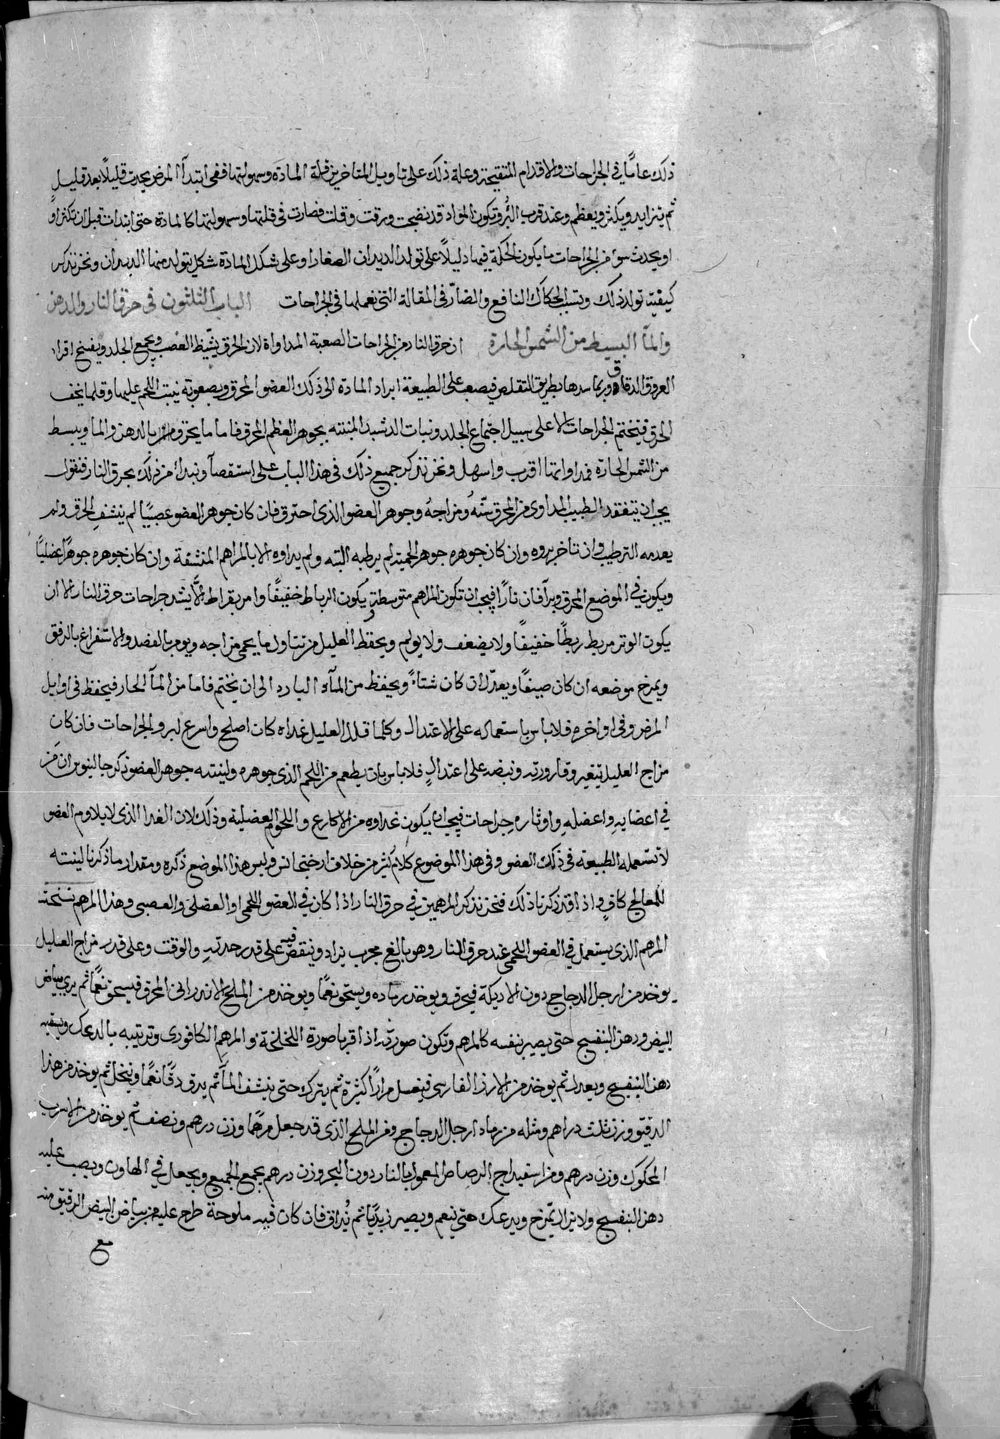 ذلك عامًا في الجراحات والاقدام المتقيحة وعلة ذلك على تاويل المتاخرين قلة المادة وسهولتها ففي ابتدآ المرض يحدث قليلًا بعد قليل
ثم يتزايد ويكثر ويعظم وعند قرب البُرو تكون المواد قد نضجت ورقت وقلت فصارت في قلتها وسهولتها كالمادة حتى ابتدات قبل ان تكثر او
او يحدث سوء من الجراحات ما يكون الحكة فيها دليلًا على تولد الديدان الصغار وعلى شكل المادة شكل يتولد منها الديدان ونحن نذكر
كيفية تولد ذلك وسبب الحكاك النافع والضارّ في المقالة التي نعملها في الجراحات الباب الثلثون في حرق النار والدهن
والمآ البسيط من الشمس الحارة ان حرق النار من الجراحات الصعبة المداواة لان الحرق يشيّط العَصَب ويجمع الجلد ويفتح افواه
العروق الدقاق وربما سدها بطريق التقلص فيصعب على الطبيعة ايراد المادة الى ذلك العضو المحرق وبصعوبة ينبت اللحم عليها وقلما يخف
الحرق فتختم الجراحات الا على سبيل اجتماع الجلد ونبات الدشبد المنبته بجوهر العظم المحرق فاما ما يحترق من بالدهن والمآ ويبسط
من الشمس الحارة فمداواتها اقرب واسهل ونحن نذكر جميع ذلك في هذا الباب على استقصآ ونبدا من ذلك بحرق النار فنقول
يجب ان يتفقد الطبيب المداوى من المحرق سِنّهُ ومزاجهُ وجوهر العضو الذى احترق فان كان جوهر العضو عصبيًا لم ينشف الحرق ولم
يعدمه الترطيب وان تاخر بروه وان كان جوهره جوهر لحمية لم يرطبه البته ولم يداوه الا بالمراهم المنشفة وان كان جوهره جوهرًا عضليًا
ويكون في الموضع المحرق وبرآ فان نارًا فيجب ان تكون المراهم متوسطة ويكون الرباط خفيفًا وامر بقراط لا يشد جراحات حرق النار الا ان
يكون الوتر مربط ربطًا خفيفًا ولا يضعف ولا يولم ويحفظ العليل من تناول ما يحمى مزاجه ويومر بالفصد والاستفراغ بالرفق
ويمرخ موضعه ان كان صيفًا ويعدّل ان كان شتاءً ويحفظ من المآء البارد الى ان يختم فاما من المآ الحار فيحفظ في اوايل
المرض وفى اواخره فلا باس باستعماله على الاعتدال وكلما قلل العليل غذاه كان اصلح واسرع لبرو الجراحات فان كان
مزاج العليل يتغير وقارورته ونبضه على اعتدالٍ فلا باس بان يطعم من اللحم الذى جوهره ولينته جوهر العضو ذكر جالينوس ان مَن
في اعضايه واعضله واوتاره جراحات فيجب ان يكون غداوه من الاكارع واللحوم العضلية وذلك لان الغذا الذى لا يلاوم العضو
لا تستعمله الطبيعة في ذلك العضو وفى هذا الموضوع كلام كثير من خلاف ارخيجانس وليس هذا الموضع ذكره ومقدار ما ذكرنا لينته
للمعالج كافٍ واذا قد ذكرنا ذلك فنحن نذكر المرهمين في حرق النار اذا كان في العضو اللحمى او العضلى والعصبى وهذا المرهم نسخته
المرهم الذى يستعمل في العضو اللحمى عند حرق النار وهو بالغ مجرب يزاد وينقص فيه على قدر حدته والوقت وعلى قدر مزاج العليل
يوخذ من ارجل الدجاج دون الاديكة فيحرق ويوخذ رماده ويستحق نعمًا ويوخذ من الملح الاندرانى المحرق فيسحق نعمًا ثم يربى ببياض
البيض ودهن البنفسج حتى يصير بنفسه كالمرهم وتكون صورته اذا قربا صورة اللخلخة والمرهم الكافورى وترتيبه بالدعك وبسقيه
دهن البنفسج وبعد ذلك ثم يوخذ من الارز الفارسى فيغسل مرارًا كثيرة ثم يترك حتى ينشف المآ ثم يدق دقًا نعمًا وينخل ثم يوخذ من هذا
الدقيق وزن ثلث دراهم ومثله من رماد ارجل الدجاج ومن الملح الذى قد جعل مرهمًا وزن درهم ونصف ثم يوخذ من الاسرب
المحكوك وزن درهم ومن اسفيداج الرصاص المعمول بالنار دون البحر وزن درهم يجمع الجميع ويجعل في الهاون ويصب عليه
دهن البنفسج ولا يزال يمرخ ويدعك حتى ينعم ويصير زبديًا ثم يُذاق فان كان فيه ملوحة طرح عليه من بياض البيض الرقيق منه
مع